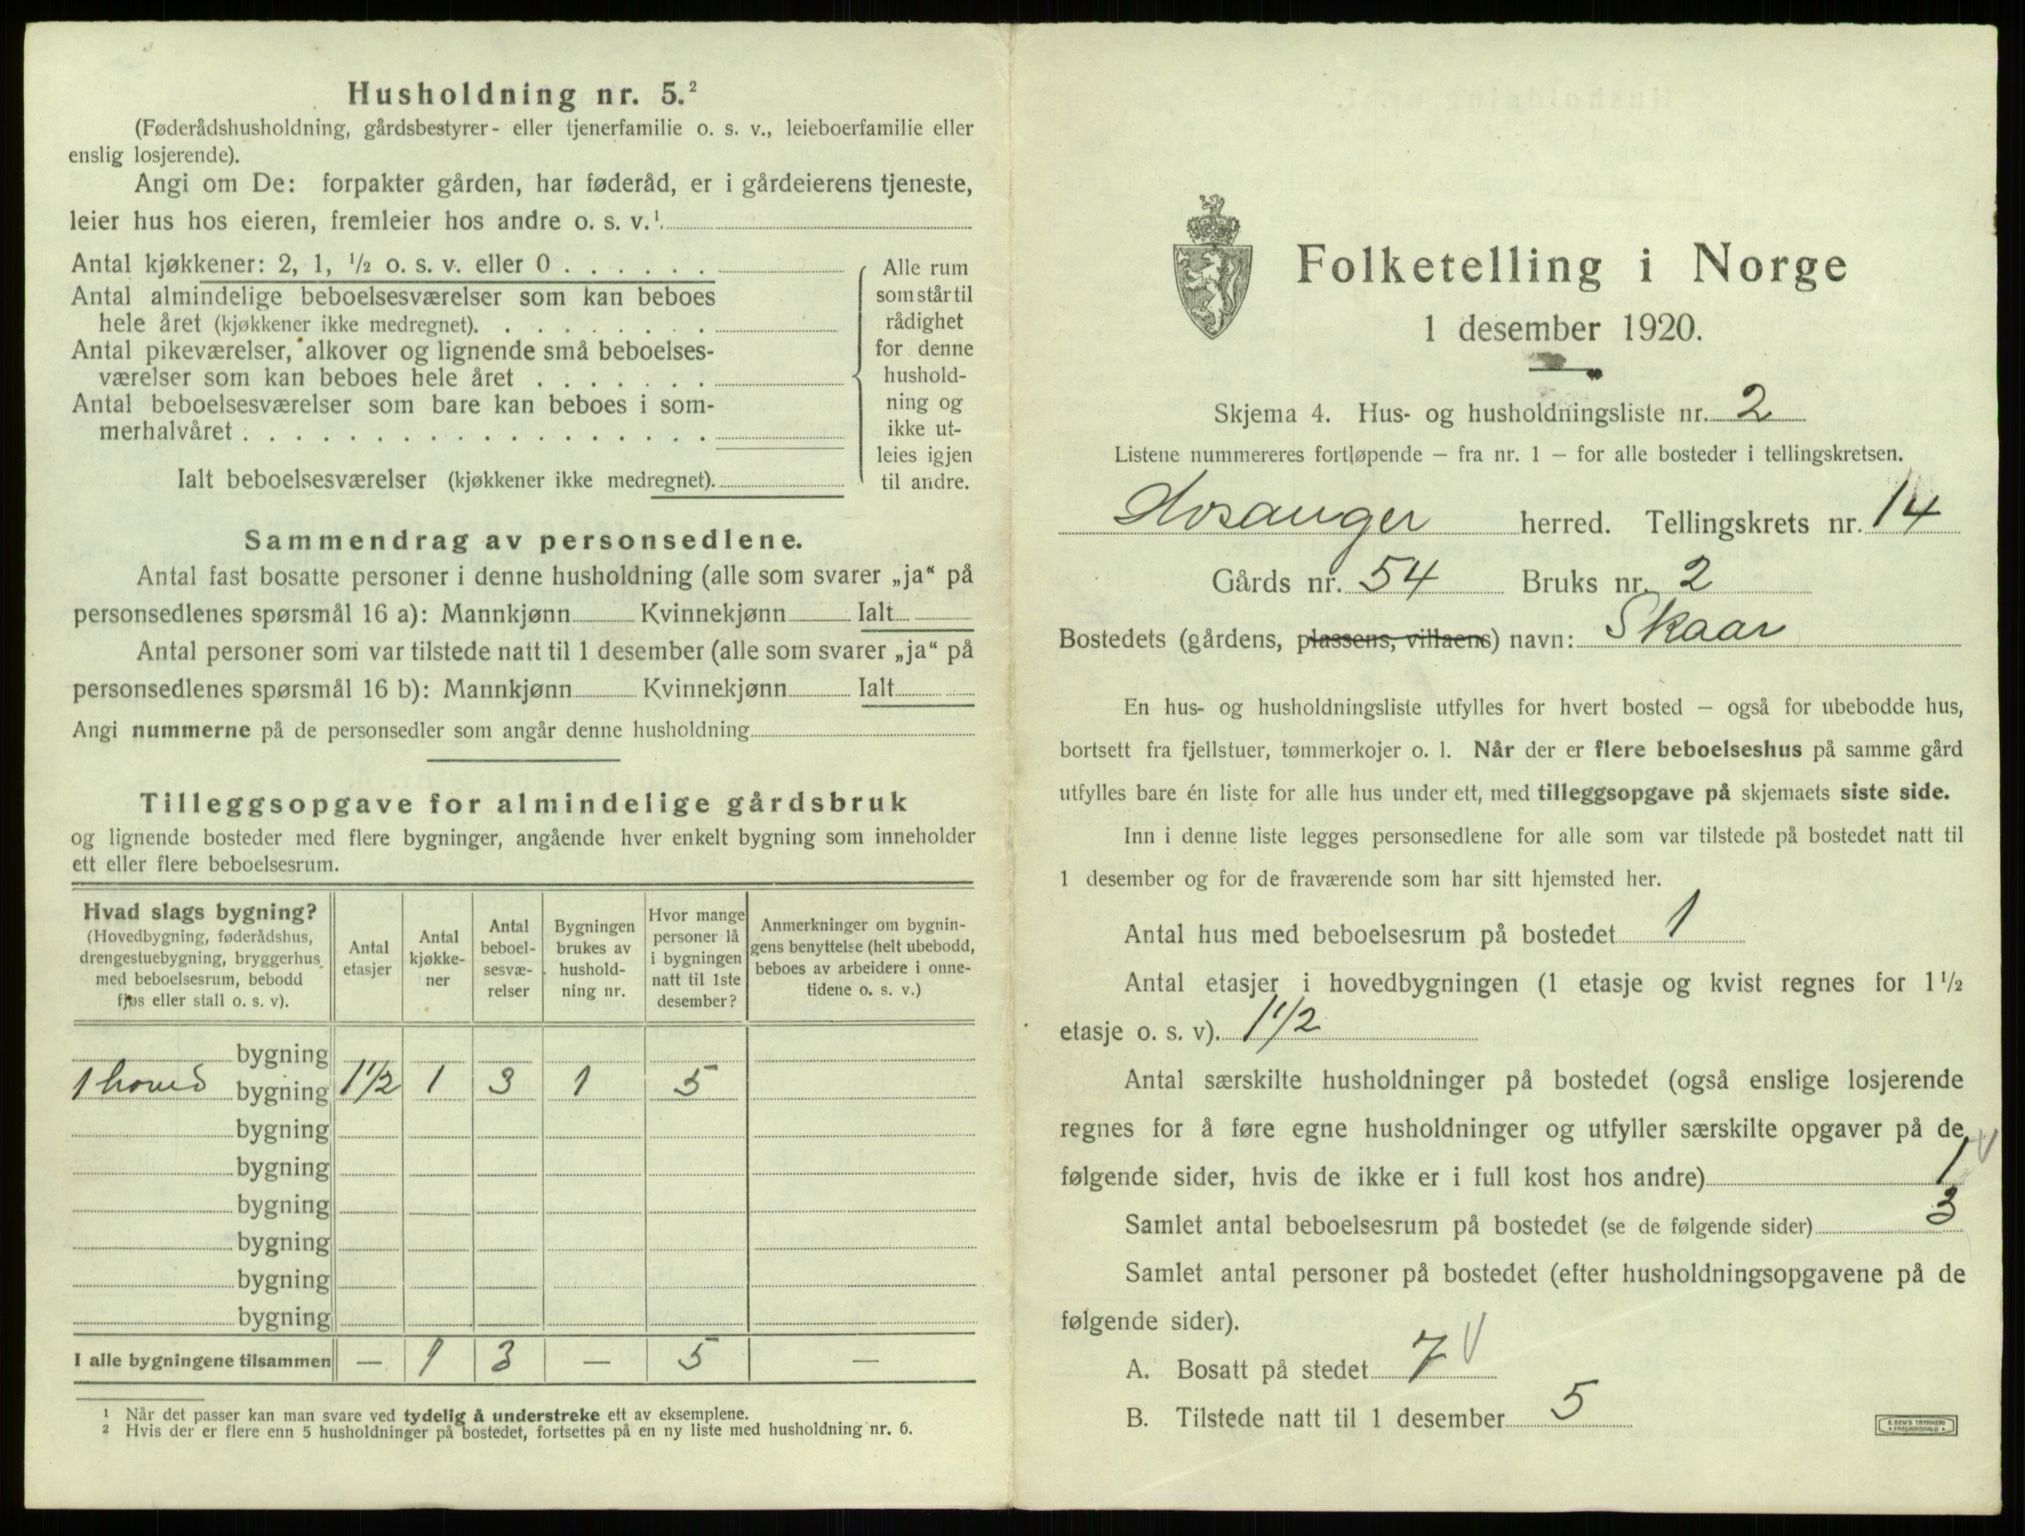 Husholdning nr. 5.²
(Føderådshusholdning, gårdsbestyrer- eller tjenerfamilie o. s. v., leieboerfamilie eller
enslig losjerende).
Angi om De: forpakter gården, har føderåd, er i gårdeierens tjeneste,
leier hus hos eieren, fremleier hos andre o. s. v.¹
Antal kjøkkener: 2, 1, ½ o. s. v. eller 0 . . . . . .
Antal almindelige beboelsesværelser som kan beboes
hele året (kjøkkener ikke medregnet). . . . . . . . .
Antal pikeværelser, alkover og lignende små beboelses-
værelser som kan beboes hele året . . . . . . .
Antal beboelsesværelser som bare kan beboes i som-
merhalvåret . . . . . . . . . . . . . . . . . .
Alle rum
som står til
rådighet
for denne
hushold-
ning og
ikke ut-
leies igjen
til andre.
Ialt beboelsesværelser (kjøkkener ikke medregnet).
Sammendrag av personsedlene.
Antal fast bosatte personer i denne husholdning (alle som svarer „ja“ på
personsedlenes spørsmål 16 a): Mannkjønn Kvinnekjønn Ialt
Antal personer som var tilstede natt til 1 desember (alle som svarer „ja“ på
personsedlenes spørsmål 16 b): Mannkjønn Kvinnekjønn Ialt
Angi nummerne på de personsedler som angår denne husholdning
Tilleggsopgave for almindelige gårdsbruk
og lignende bosteder med flere bygninger, angående hver enkelt bygning som inneholder
ett eller flere beboelsesrum.
Hvad slags bygning?
(Hovedbygning, føderådshus,
drengestuebygning, bryggerhus
med beboelsesrum, bebodd
fjøs eller stall o. s. v).
Antal
etasjer
Antal
kjøkke-
ner
Antal
beboel-
sesvæ-
relser
Bygningen
brukes av
hushold-
ning nr.
Hvor mange
personer lå
i bygningen
natt til 1ste
desember?
Anmerkninger om bygnin-
gens benyttelse (helt ubebodd,
beboes av arbeidere i onne-
tidene o. s. v.)
bygning
1 hoved bygning 1½ 1 3 1 5
bygning
bygning
bygning
bygning
bygning
bygning
I alle bygningene tilsammen — 1 3 — 5 —
¹ Når det passer kan man svare ved tydelig å understreke ett av eksemplene.
² Hvis der er flere enn 5 husholdninger på bostedet, fortsettes på en ny liste med husholdning nr. 6.
Folketelling i Norge
1 desember 1920.
Skjema 4. Hus- og husholdningsliste nr. 2
Listene nummereres fortløpende – fra nr. 1 – for alle bosteder i tellingskretsen.
Hosanger herred. Tellingskrets nr. 14
Gårds nr. 54 Bruks nr. 2
Bostedets (gårdens, plassens, villaens) navn: Skaar
En hus- og husholdningsliste utfylles for hvert bosted – også for ubebodde hus,
bortsett fra fjellstuer, tømmerkojer o. l. Når der er flere beboelseshus på samme gård
utfylles bare én liste for alle hus under ett, med tilleggsopgave på skjemaets siste side.
Inn i denne liste legges personsedlene for alle som var tilstede på bostedet natt til
1 desember og for de fraværende som har sitt hjemsted her.
Antal hus med beboelsesrum på bostedet 1
Antal etasjer i hovedbygningen (1 etasje og kvist regnes for 1½
etasje o. s. v). 1½
Antal særskilte husholdninger på bostedet (også enslige losjerende
regnes for å føre egne husholdninger og utfyller særskilte opgaver på de
følgende sider, hvis de ikke er i full kost hos andre) 1 √
Samlet antal beboelsesrum på bostedet (se de følgende sider) 3
Samlet antal personer på bostedet (efter husholdningsopgavene på de
følgende sider).
A. Bosatt på stedet 7 √
B. Tilstede natt til 1 desember 5
E. SEM'S TRYKKERI
FREDRIKSHALD